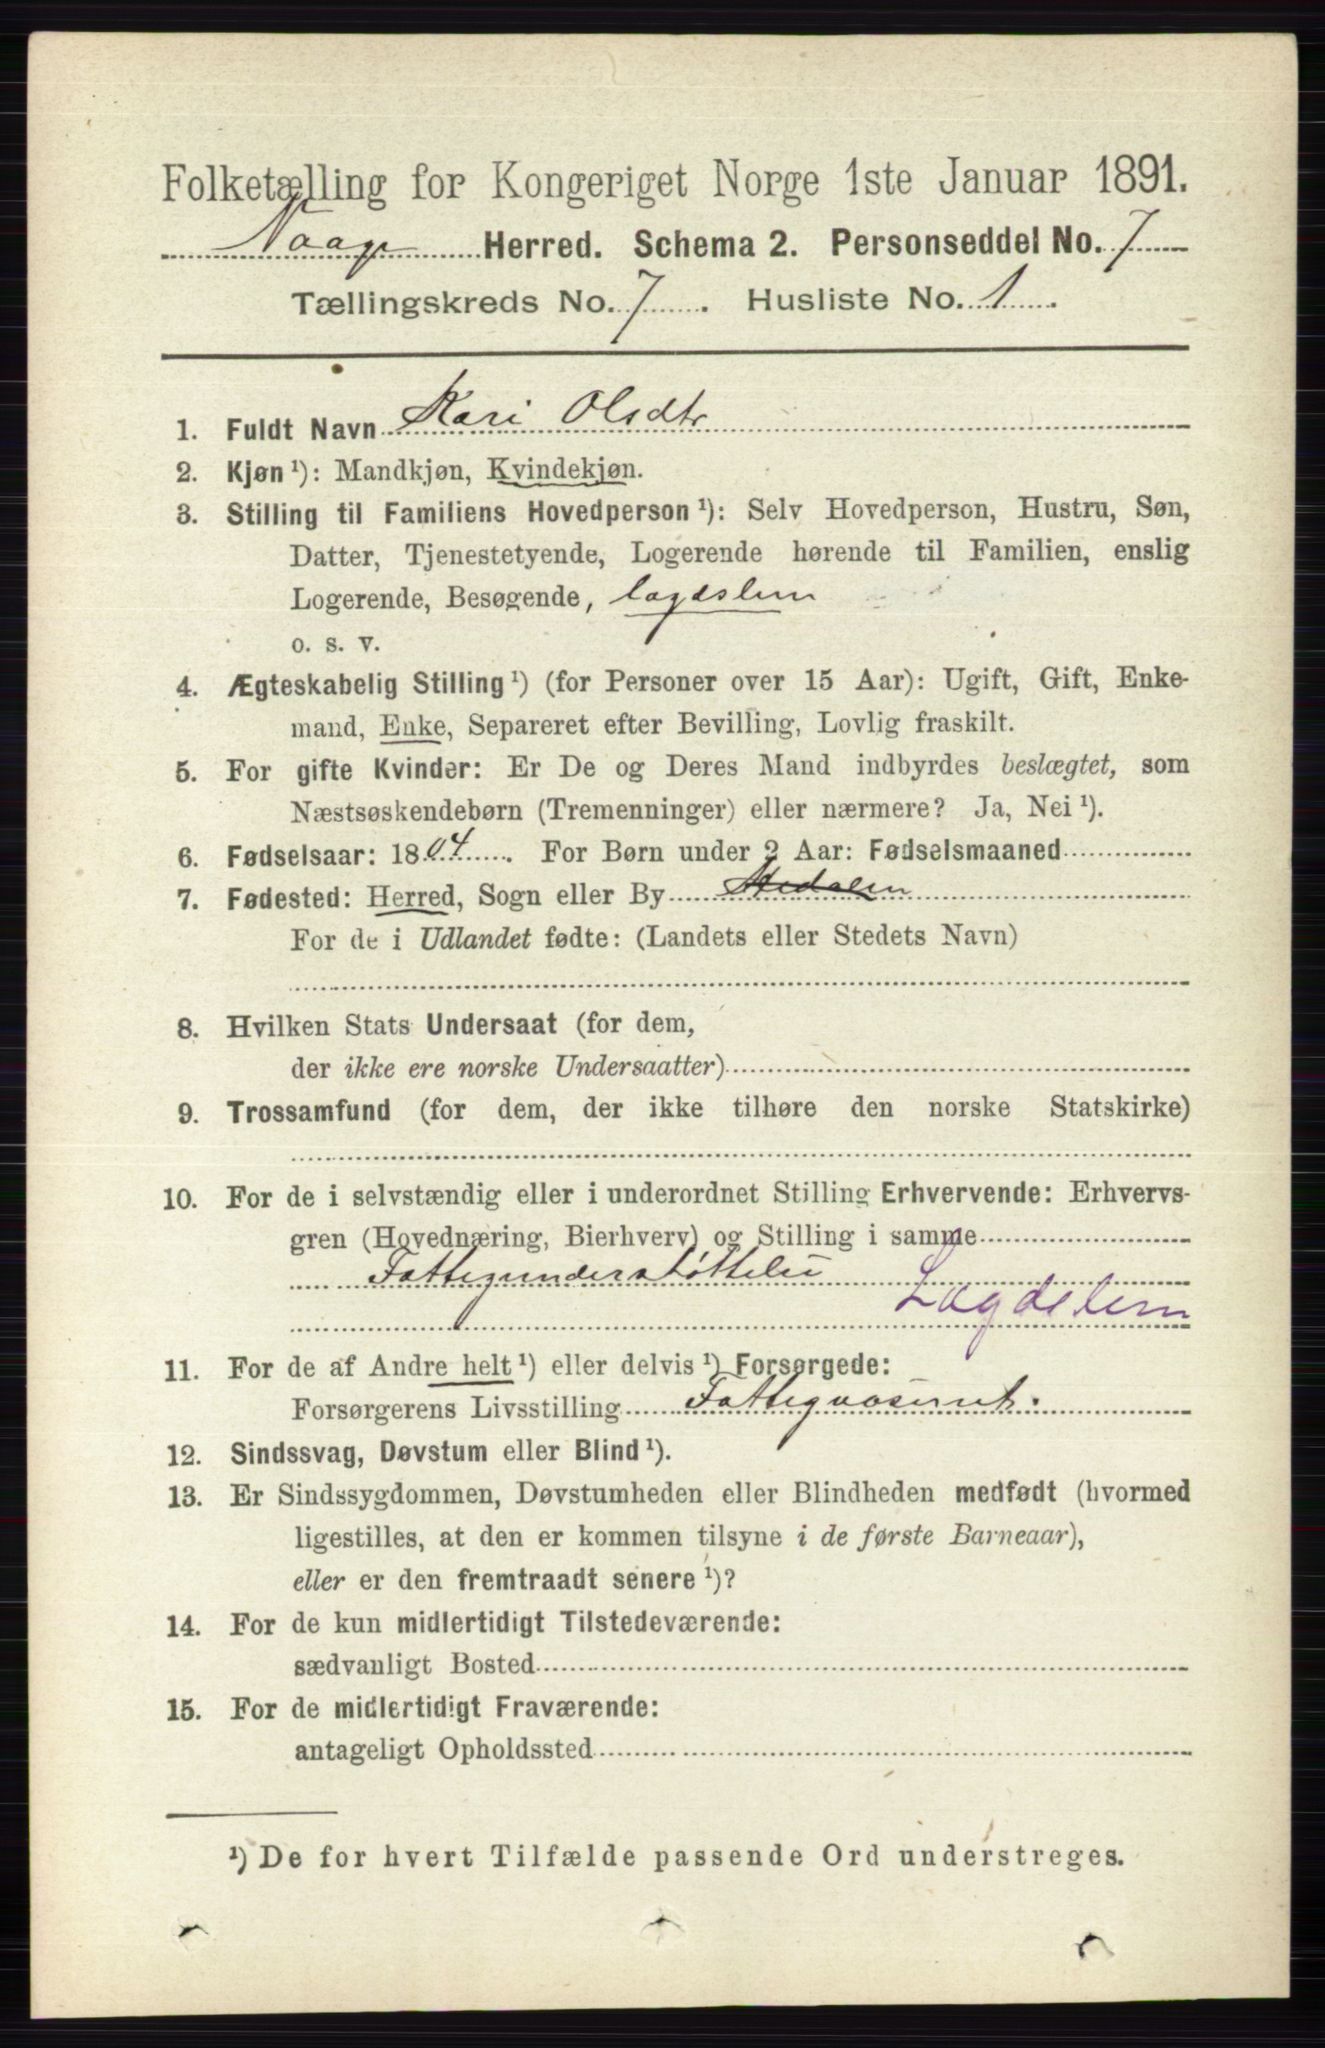 Folketælling for Kongeriget Norge 1ste Januar 1891.
Vaage Herred. Schema 2. Personseddel No. 7
Tællingskreds No. 7. Husliste No. 1.
1. Fuldt Navn Kari Olsdtr
2. Kjøn ¹): Mandkjøn, Kvindekjøn.
3. Stilling til Familiens Hovedperson ¹): Selv Hovedperson, Hustru, Søn,
Datter, Tjenestetyende, Logerende hørende til Familien, enslig
Logerende, Besøgende, lagdslem
o. s. v.
4. Ægteskabelig Stilling ¹) (for Personer over 15 Aar): Ugift, Gift, Enke-
mand, Enke, Separeret efter Bevilling, Lovlig fraskilt.
5. For gifte Kvinder: Er De og Deres Mand indbyrdes beslægtet, som
Næstsøskendebørn (Tremenninger) eller nærmere? Ja, Nei ¹).
6. Fødselsaar: 1804. For Børn under 2 Aar: Fødselsmaaned
7. Fødested: Herred, Sogn eller By
For de i Udlandet fødte: (Landets eller Stedets Navn)
8. Hvilken Stats Undersaat (for dem,
der ikke ere norske Undersaatter)
9. Trossamfund (for dem, der ikke tilhøre den norske Statskirke)
10. For de i selvstændig eller i underordnet Stilling Erhvervende: Erhvervs-
gren (Hovednæring, Bierhverv) og Stilling i samme
Fattigunderstøttelse
Lægdslem
11. For de af Andre helt ¹) eller delvis ¹) Forsørgede:
Forsørgerens Livsstilling Fattigvæsenet.
12. Sindssvag, Døvstum eller Blind ¹).
13. Er Sindssygdommen, Døvstumheden eller Blindheden medfødt (hvormed
ligestilles, at den er kommen tilsyne i de første Barneaar),
eller er den fremtraadt senere ¹)?
14. For de kun midlertidigt Tilstedeværende:
sædvanligt Bosted
15. For de midlertidigt Fraværende:
antageligt Opholdssted
¹) De for hvert Tilfælde passende Ord understreges.